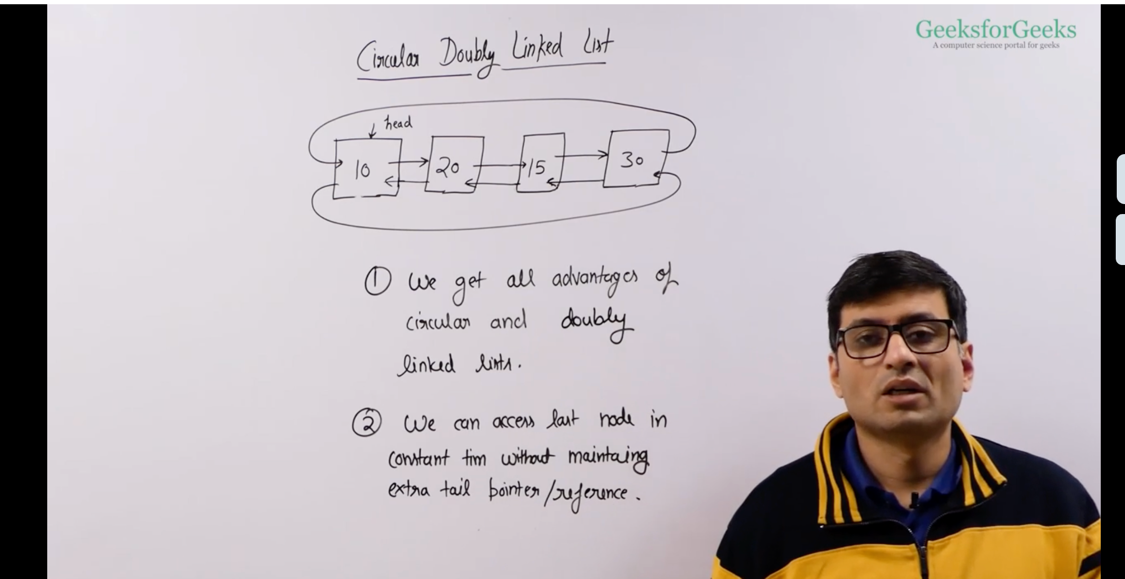 GeeksforGeeks
A computer science portal for geeks
Circular Doubly Linked List
head
10 20 15 30
① We get all advantages of
circular and doubly
linked lists.
② We can access last node in
constant tim without maintaing
extra tail pointer/reference.